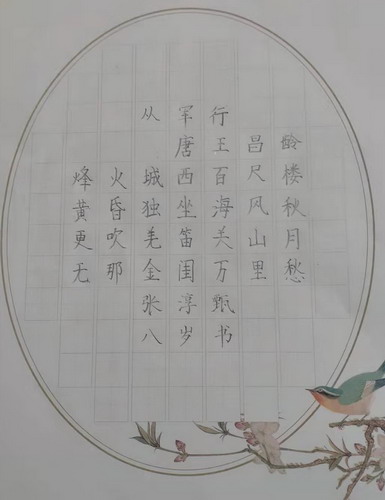 从军行
唐王昌龄
烽火城西百尺楼
黄昏独坐海风秋
更吹羌笛关山月
无那金闺万里愁
张淳甄
八岁书